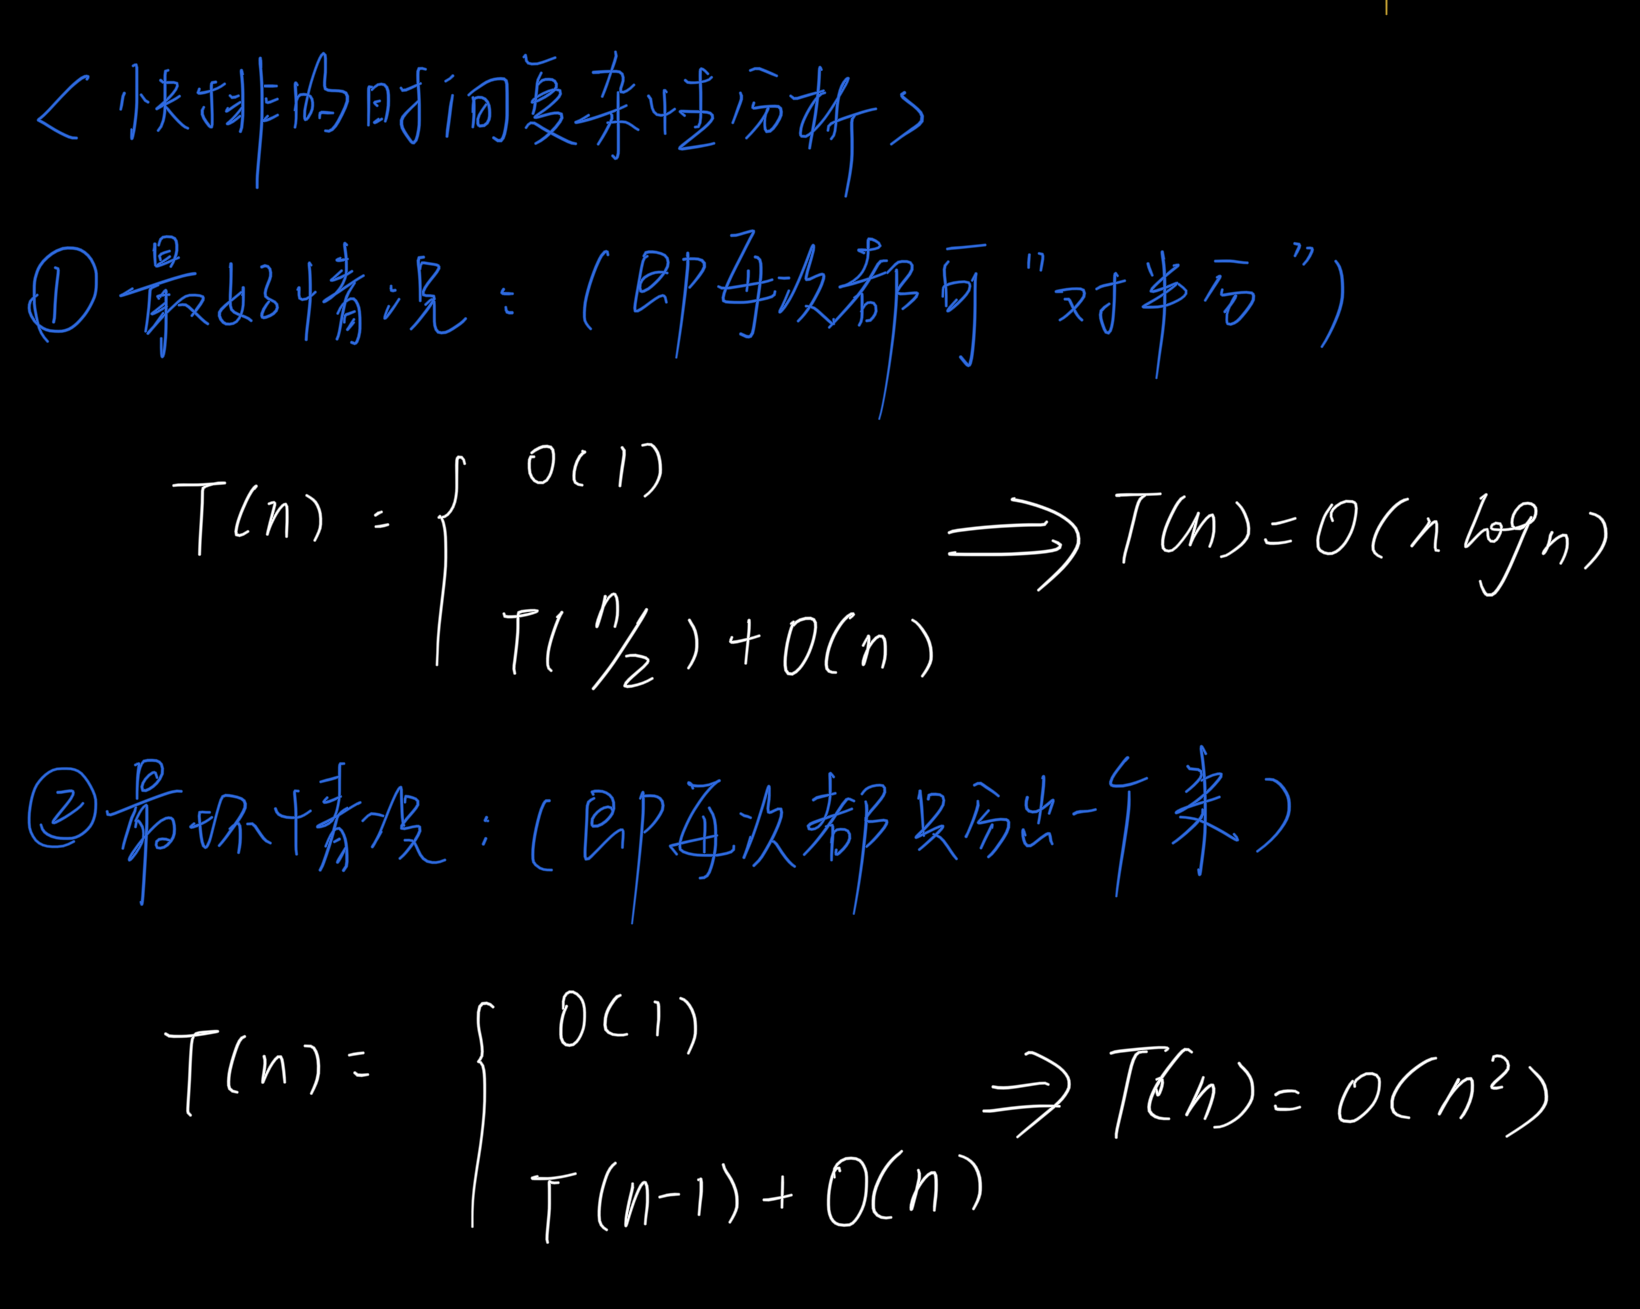 <快排的时间复杂性分析>
① 最好情况：(即每次都可"对半分")
T(n) = { O(1)
T(n/2) + O(n)
⇒ T(n) = O(n log n)
② 最坏情况：(即每次都只分出一个来)
T(n) = { O(1)
T(n-1) + O(n)
⇒ T(n) = O(n²)